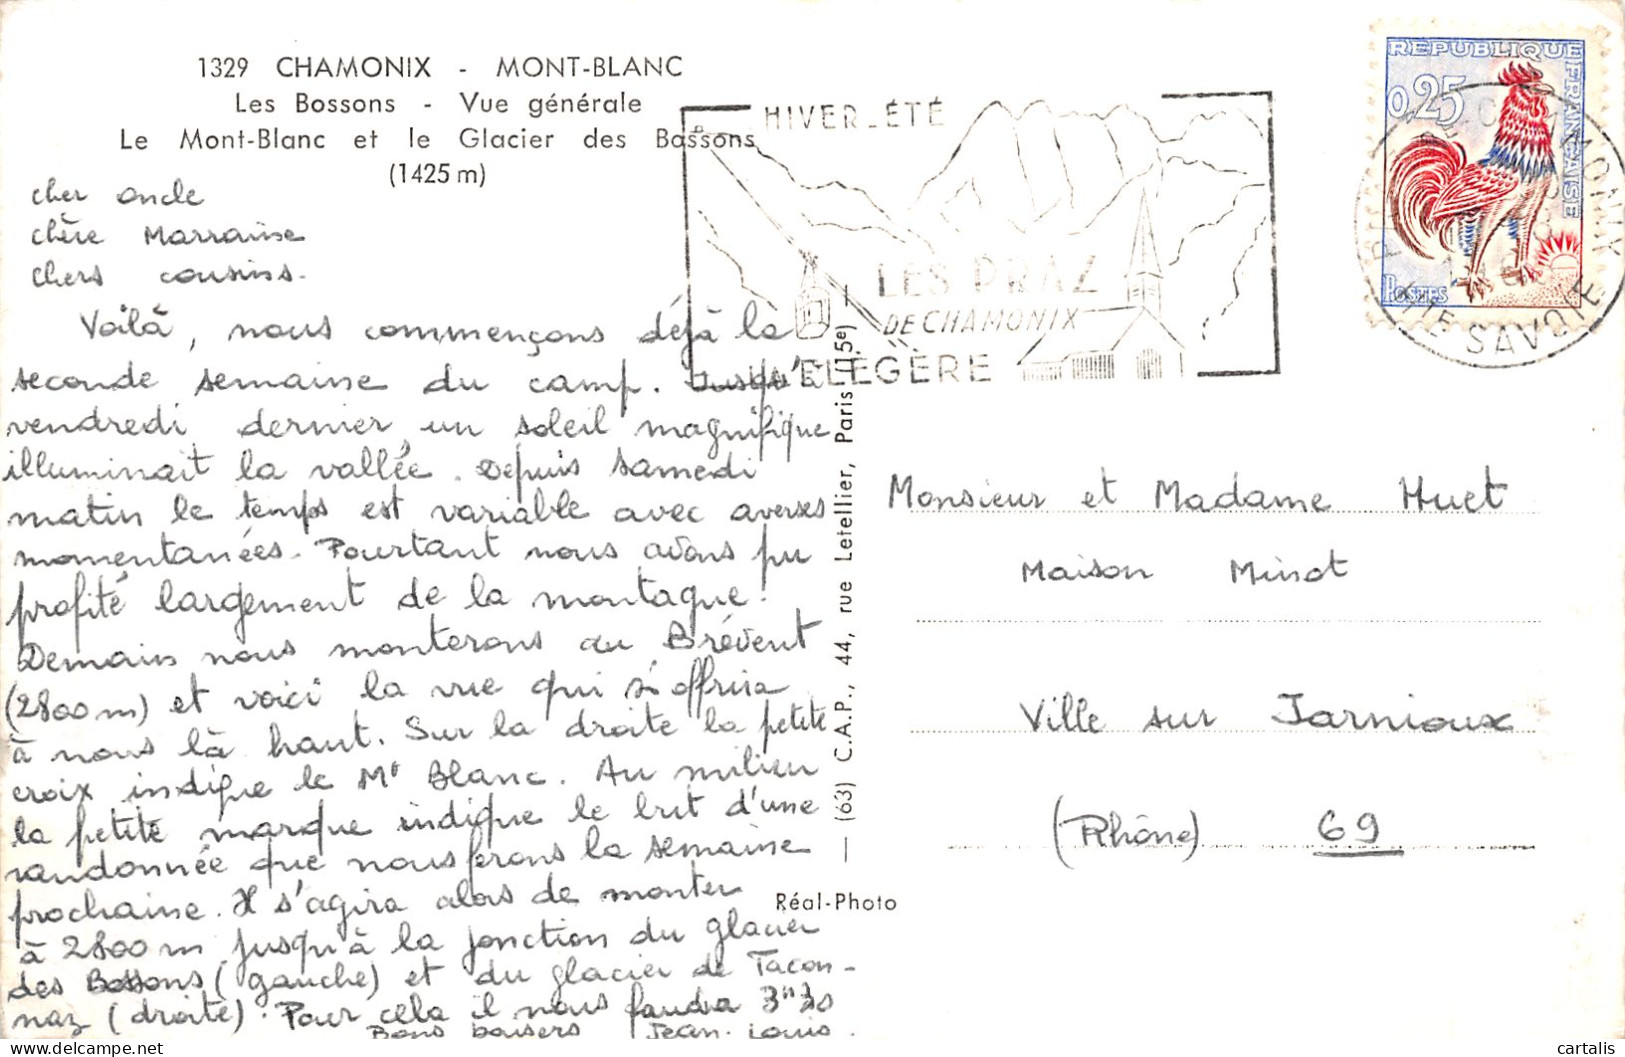 1329 CHAMONIX - MONT-BLANC
Les Bossons - Vue générale
Le Mont-Blanc et le Glacier des Bossons
(1425 m)
cher oncle
chère Marraine
chers cousins.
Voilà, nous commençons déjà la
seconde semaine du camp. Jusqu'à
vendredi dernier un soleil magnifique
illuminait la vallée. Depuis samedi
matin le temps est variable avec averses
momentanées. Pourtant nous avons pu
profité largement de la montagne.
Demain nous monterons au Brévent
(2800 m) et voici la vue qui s'offrira
à nous là haut. Sur la droite la petite
croix indique le Mt Blanc. Au milieu
la petite marque indique le but d'une
randonnée que nous ferons la semaine
prochaine. Il s'agira alors de monter
à 2800 m jusqu'à la jonction du glacier
des Bossons (gauche) et du glacier de Tacon-
naz (droite). Pour cela il nous faudra 3h30
Bons baisers Jean-Louis.
(63) C.A.P., 44, rue Letellier, Paris (15e)
Réal-Photo
HIVER_ÉTÉ
LES PRAZ
DE CHAMONIX
FLÉGÈRE
REPUBLIQUE FRANÇAISE
0,25
POSTES
CHAMONIX
HTE SAVOIE
Monsieur et Madame Huet
Maison Minot
Ville sur Jarnioux
(Rhône) 69
cartalis